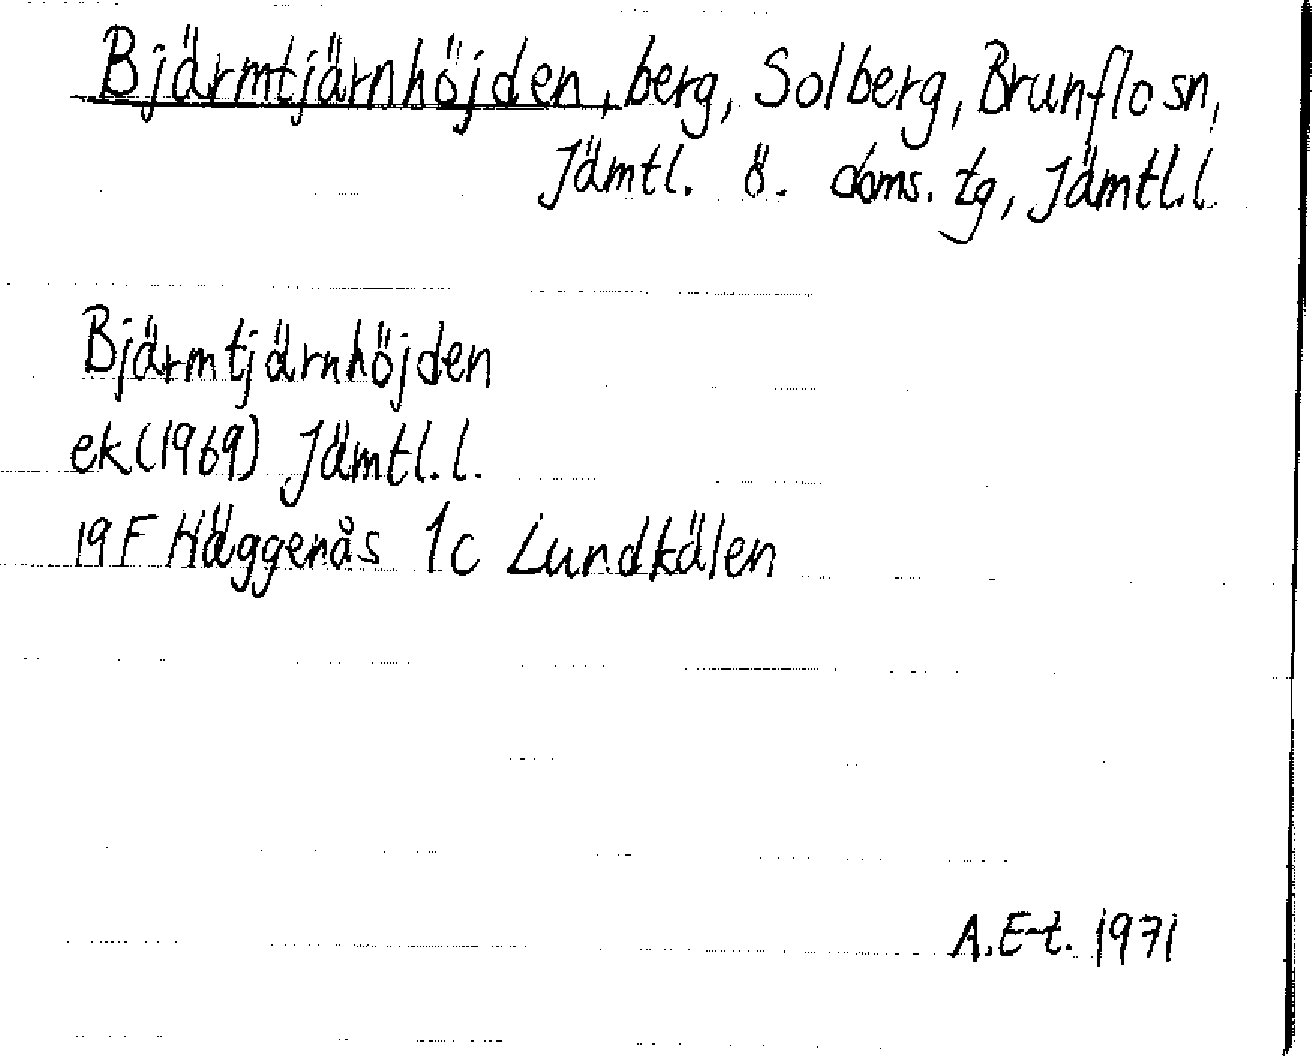 Bjärmtjärnhöjden, berg, Solberg, Brunflo sn,
Jämtl. ö. doms. tg, Jämtl.l.
Bjärmtjärnhöjden
ek (1969) Jämtl. l.
19F Häggenås 1c Lundkälen
A. E-t. 1971